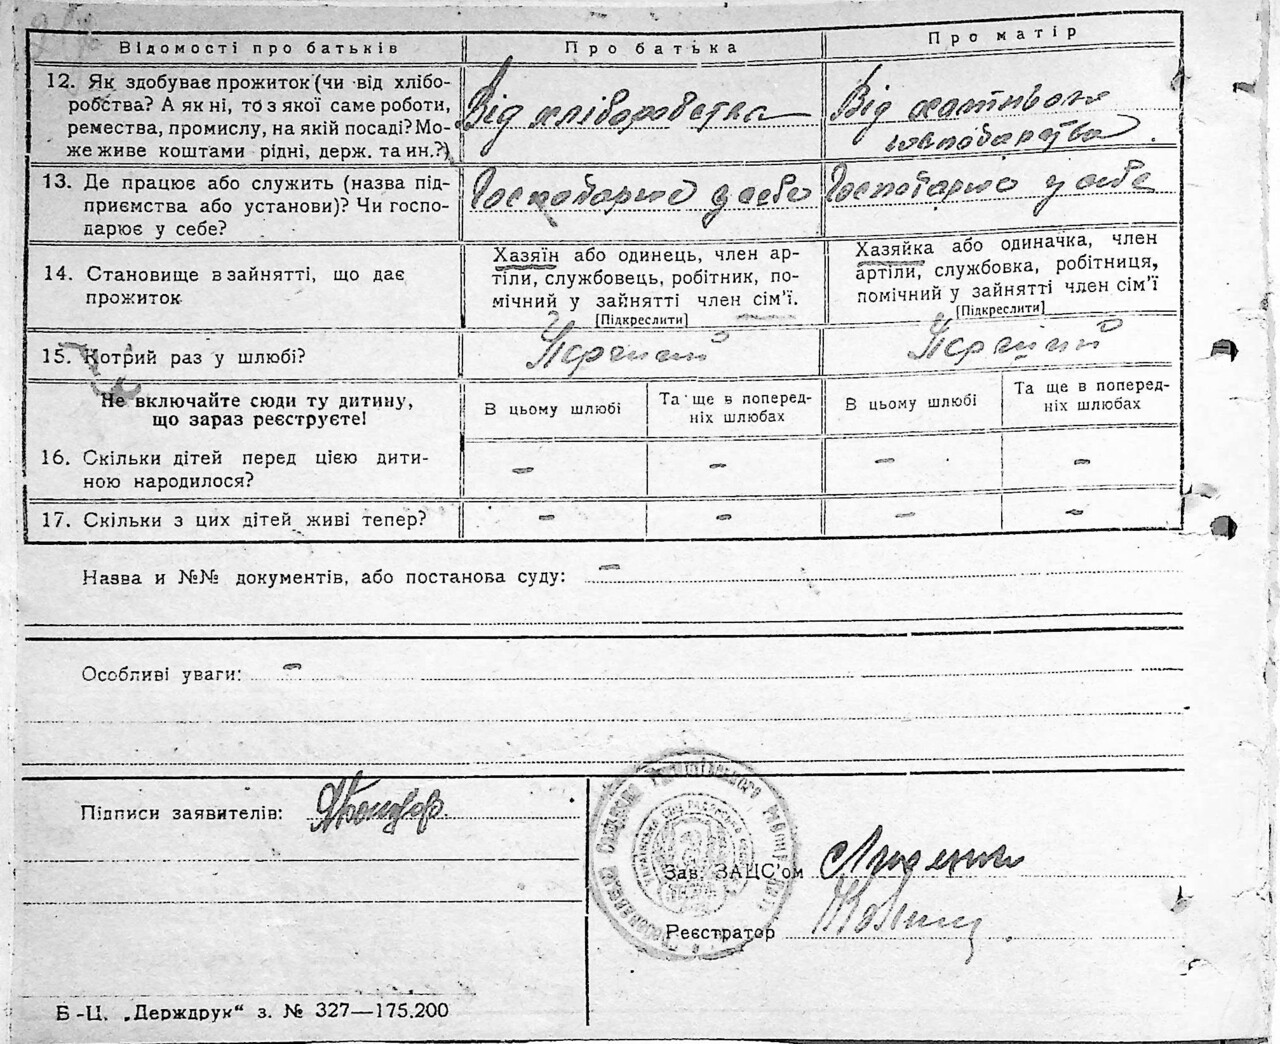 Відомості про батьків Про батька Про матір
12. Як здобуває прожиток (чи від хлібо-
робства? А як ні, то з якої саме роботи,
ремества, промислу, на якій посаді? Мо-
же живе коштами рідні, держ. та ин.?)
Від хліборобства
Від хатнього
господарства.
13. Де працює або служить (назва під-
приємства або установи)? Чи госпо-
дарює у себе?
Господарює у себе
Господарює у себе
14. Становище в зайнятті, що дає
прожиток
Хазяїн або одинець, член ар-
тіли, службовець, робітник, по-
мічний у зайнятті член сім'ї.
[Підкреслити]
Хазяйка або одиначка, член
артіли, службовка, робітниця,
помічний у зайнятті член сім'ї
[Підкреслити]
15. Котрий раз у шлюбі?
Перший
Перший
Не включайте сюди ту дитину,
що зараз реєструєте!
В цьому шлюбі
Та ще в поперед-
ніх шлюбах
В цьому шлюбі
Та ще в поперед-
ніх шлюбах
16. Скільки дітей перед цією дити-
ною народилося?
– – – –
17. Скільки з цих дітей живі тепер?
– – – –
Назва и №№ документів, або постанова суду: –
Особливі уваги: –
Підписи заявителів:
Зав. ЗАЦС'ом
Реєстратор
Б-Ц. „Держдрук“ з. № 327—175.200